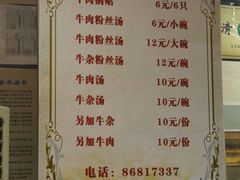 牛肉锅贴 6元/6只
牛肉粉丝汤 6元/小碗
牛肉粉丝汤 12元/大碗
牛杂粉丝汤 12元/碗
牛肉汤 10元/碗
牛杂汤 10元/碗
另加牛杂 10元/份
另加牛肉 10元/份
电话：86817337